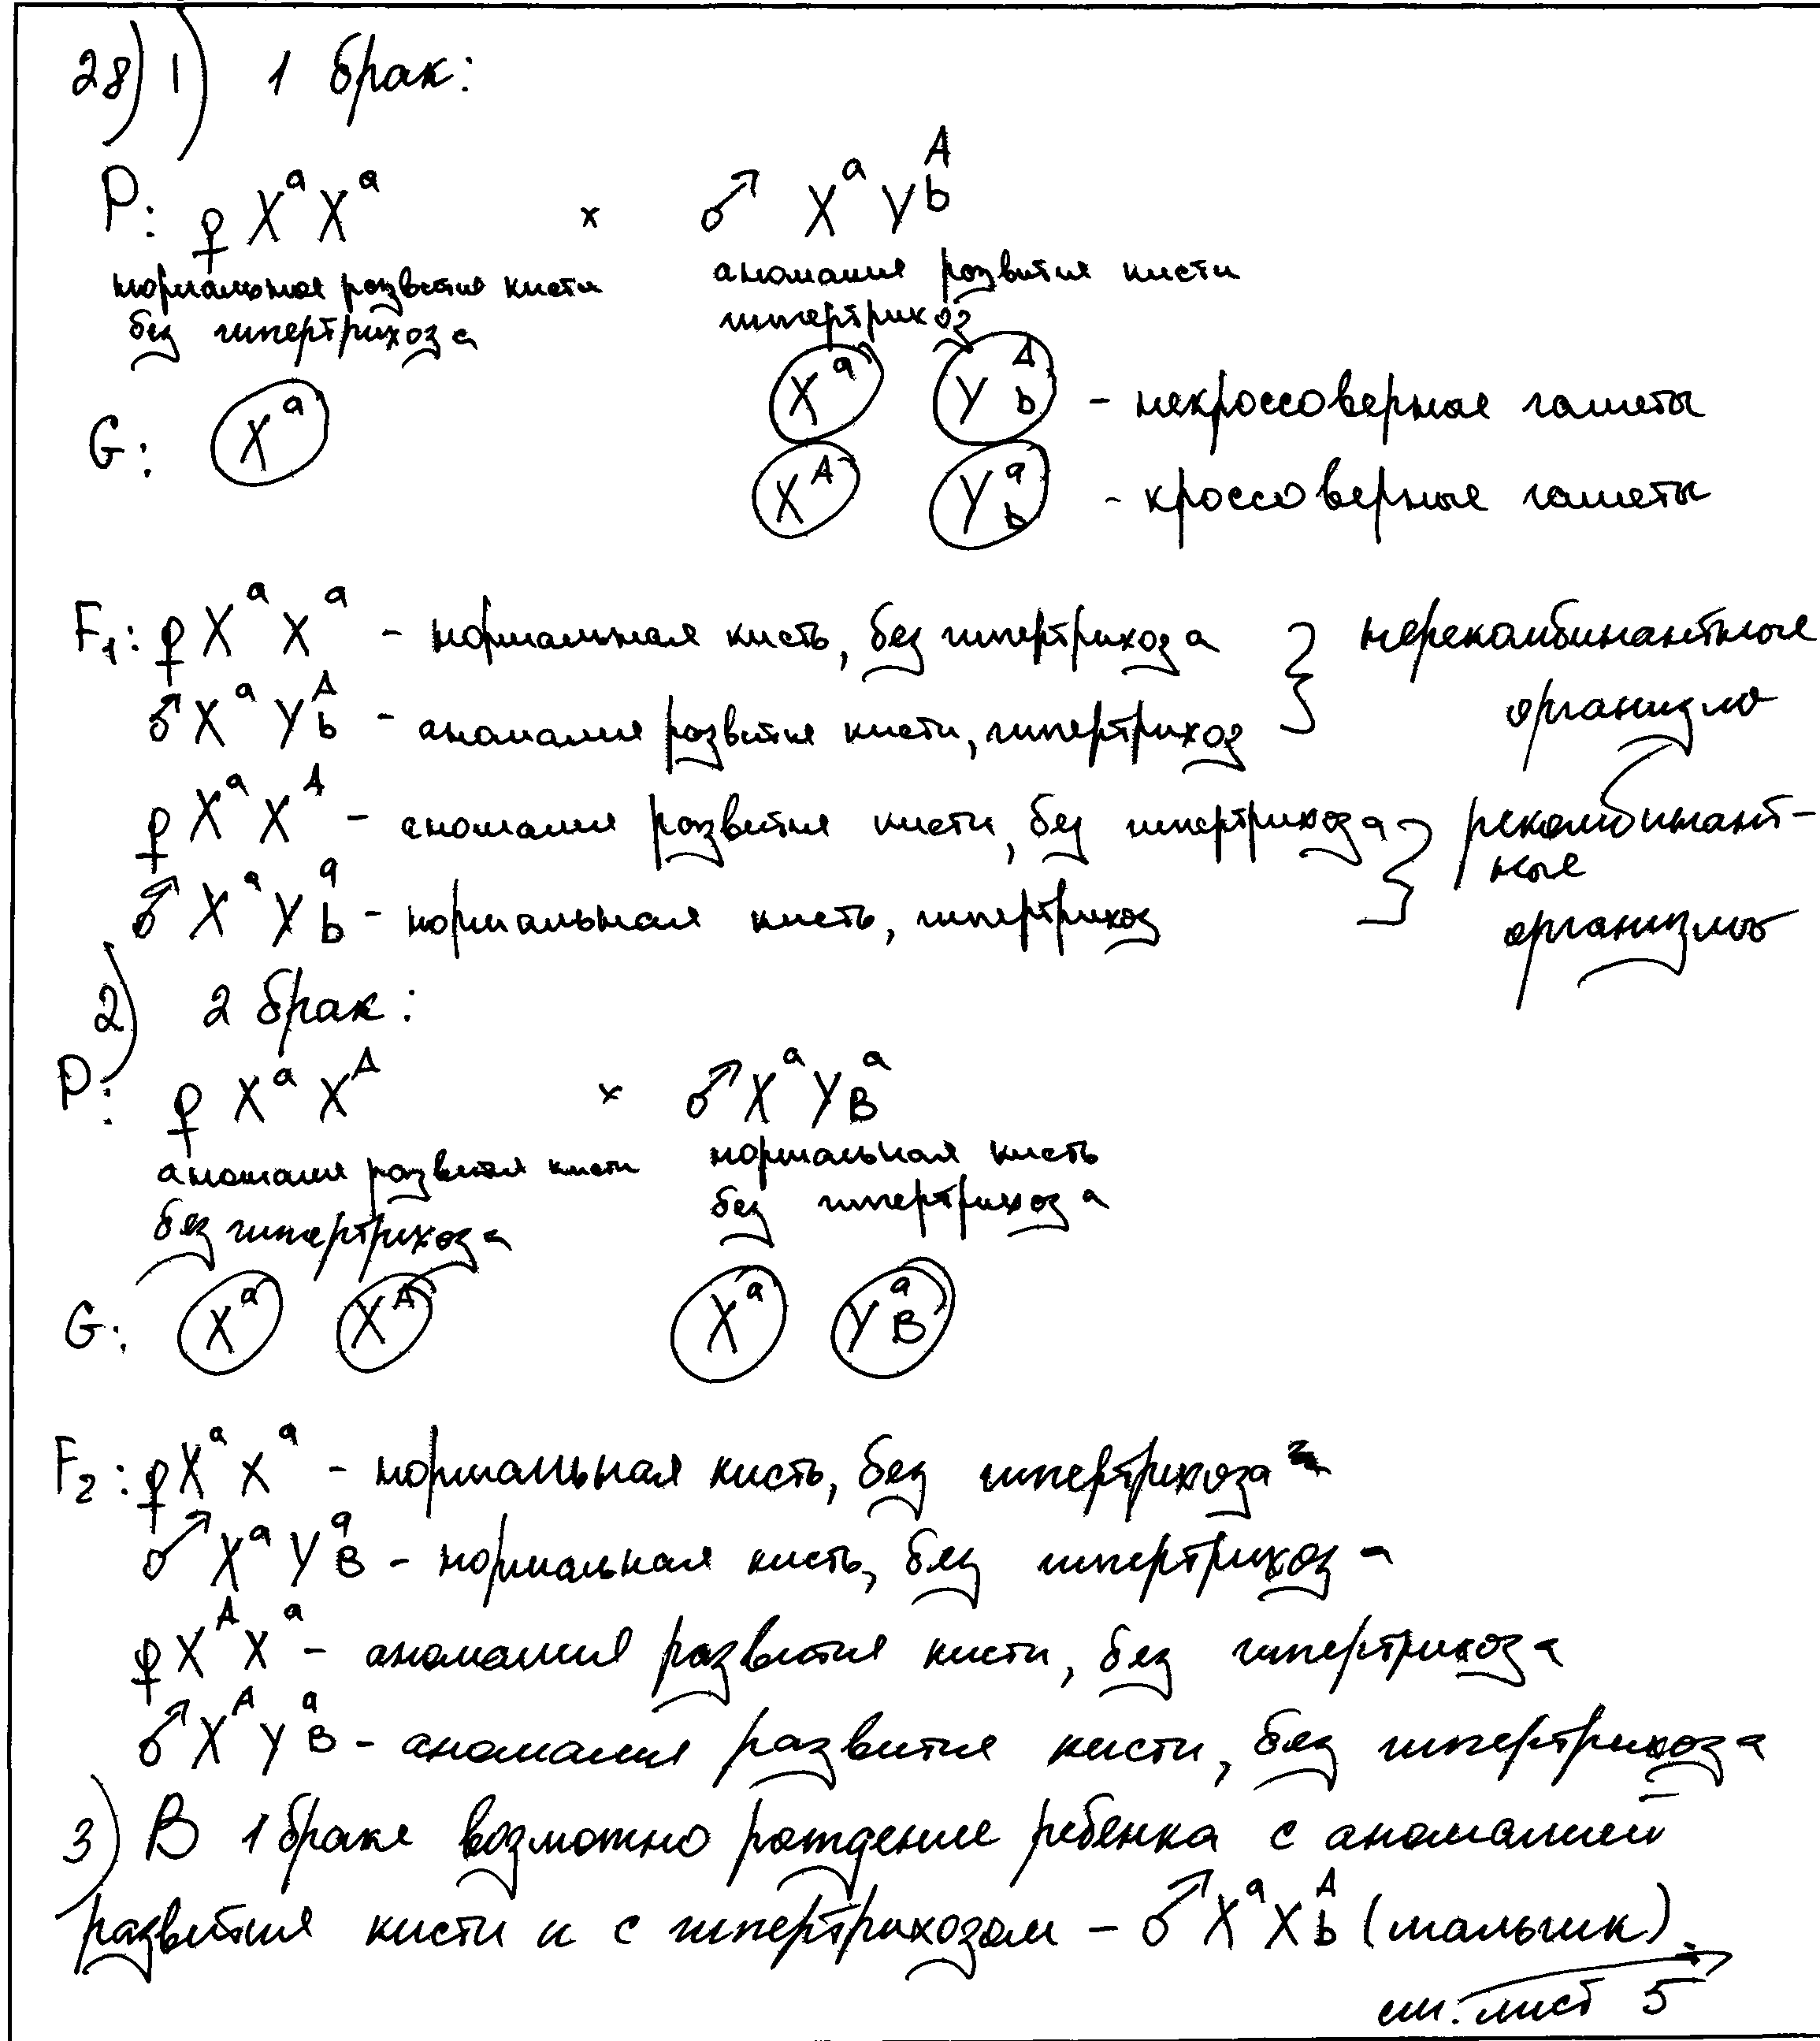 28) 1) 1 брак:
P: ♀ XᵃXᵃ × ♂ XᵃYᴬb
нормальное развитие кисти аномалия развития кисти
без гипертрихоза гипертрихоз
G: Xᵃ Xᵃ Yᴬb - некроссоверные гаметы
Xᴬ Yᵃb - кроссоверные гаметы
F₁: ♀ XᵃXᵃ - нормальная кисть, без гипертрихоза } нерекомбинантные
♂ XᵃYᴬb - аномалия развития кисти, гипертрихоз организмы
♀ XᵃXᴬ - аномалия развития кисти, без гипертрихоза } рекомбинант-
ные
♂ XᵃYᵃb - нормальная кисть, гипертрихоз организмы
2) 2 брак:
P: ♀ XᵃXᴬ × ♂ XᵃYᵃB
аномалия развития кисти нормальная кисть
без гипертрихоза без гипертрихоза
G: Xᵃ Xᴬ Xᵃ YᵃB
F₂: ♀ XᵃXᵃ - нормальная кисть, без гипертрихоза
♂ XᵃYᵃB - нормальная кисть, без гипертрихоза
♀ XᴬXᵃ - аномалия развития кисти, без гипертрихоза
♂ XᴬYᵃB - аномалия развития кисти, без гипертрихоза
3) В 1 браке возможно рождение ребенка с аномалией
развития кисти и с гипертрихозом - ♂ XᵃXᴬb (мальчик).
см. лист 5